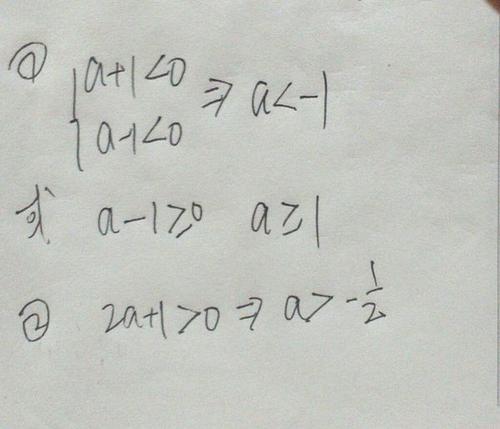 ① { a+1<0
a-1<0 ⇒ a<-1
或 a-1≥0 a≥1
② 2a+1>0 ⇒ a>-1/2